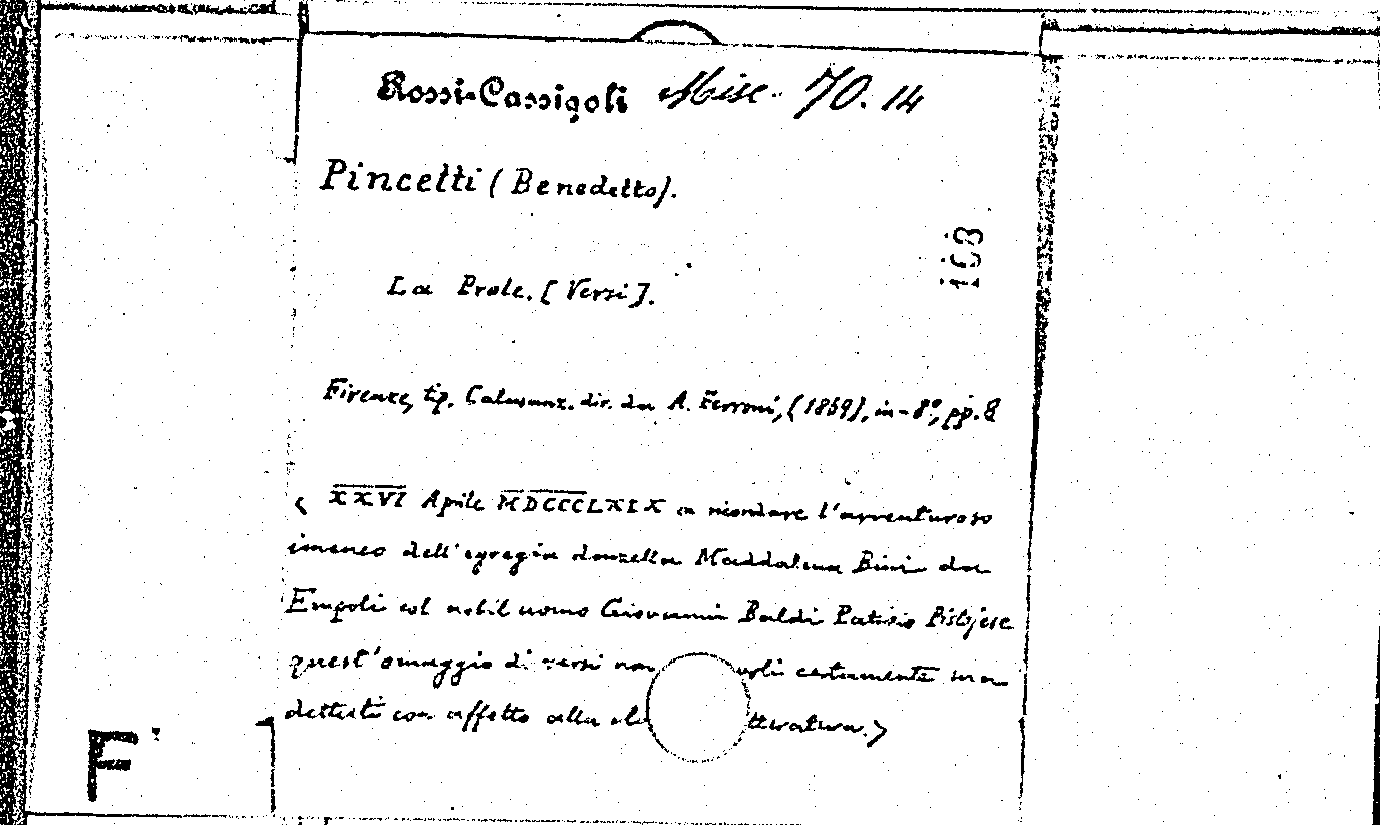 Rossi-Cassigoli Misc. 70. 14
Pincetti (Benedetto).
168
La Prole. [Versi].
Firenze, tip. Calasanz. dir. da A. Ferroni, (1869), in-8°, pp. 8
< XXVI Aprile MDCCCLXIX a ricordare l'avventuroso
imeneo dell'egregia donzella Maddalena Bini da
Empoli col nobil uomo Giovanni Baldi Patrizio Pistojese
quest'omaggio di versi non voli certamente ma
dettati con affetto alla tteratura.>
F